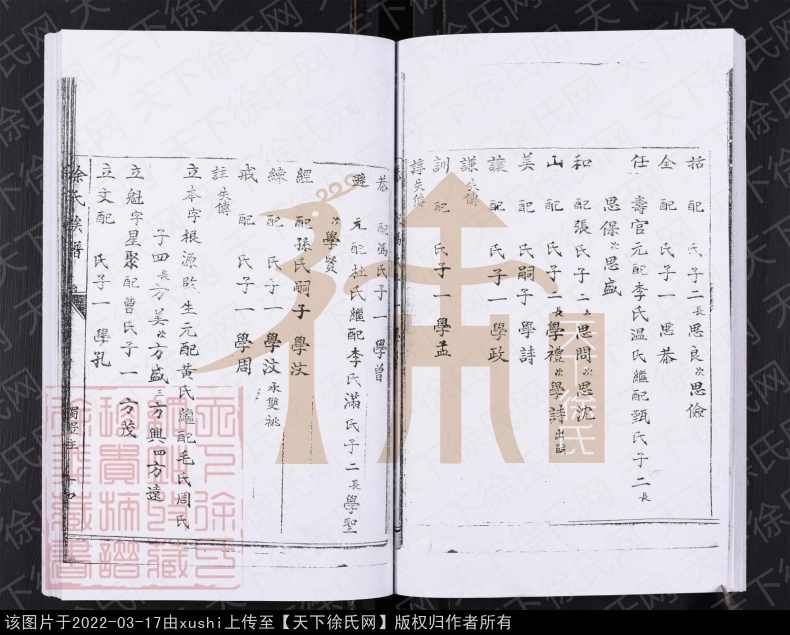 括 配 氏子二長思良次思儉
全 配 氏子一 思恭
任 壽官元配李氏温氏繼配甄氏子二長
思保次思盛
和 配張氏子二長思問次思沈
山 配 氏子二長學禮次學詩出嗣
美 配 氏嗣子 學詩
讓 配 氏子一 學政
謙失傳
訓 配 氏子一 學孟
諄失傳
恭 配馮氏子一 學曾
遜 元配杜氏繼配李氏滿氏子二長學聖
次學賢
經 配孫氏嗣子 學汶
綠 配 氏子一 學汶承雙祧
戒 配 氏子一 學周
註失傳
立本字根源監生元配黃氏繼配毛氏周氏
子四長方美次方盛三方興四方遠
立魁字星聚配曾氏子一 方茂
立文配 氏子一 學孔
徐氏族譜
天下徐氏
该图片于2022-03-17由xushi上传至【天下徐氏网】版权归作者所有